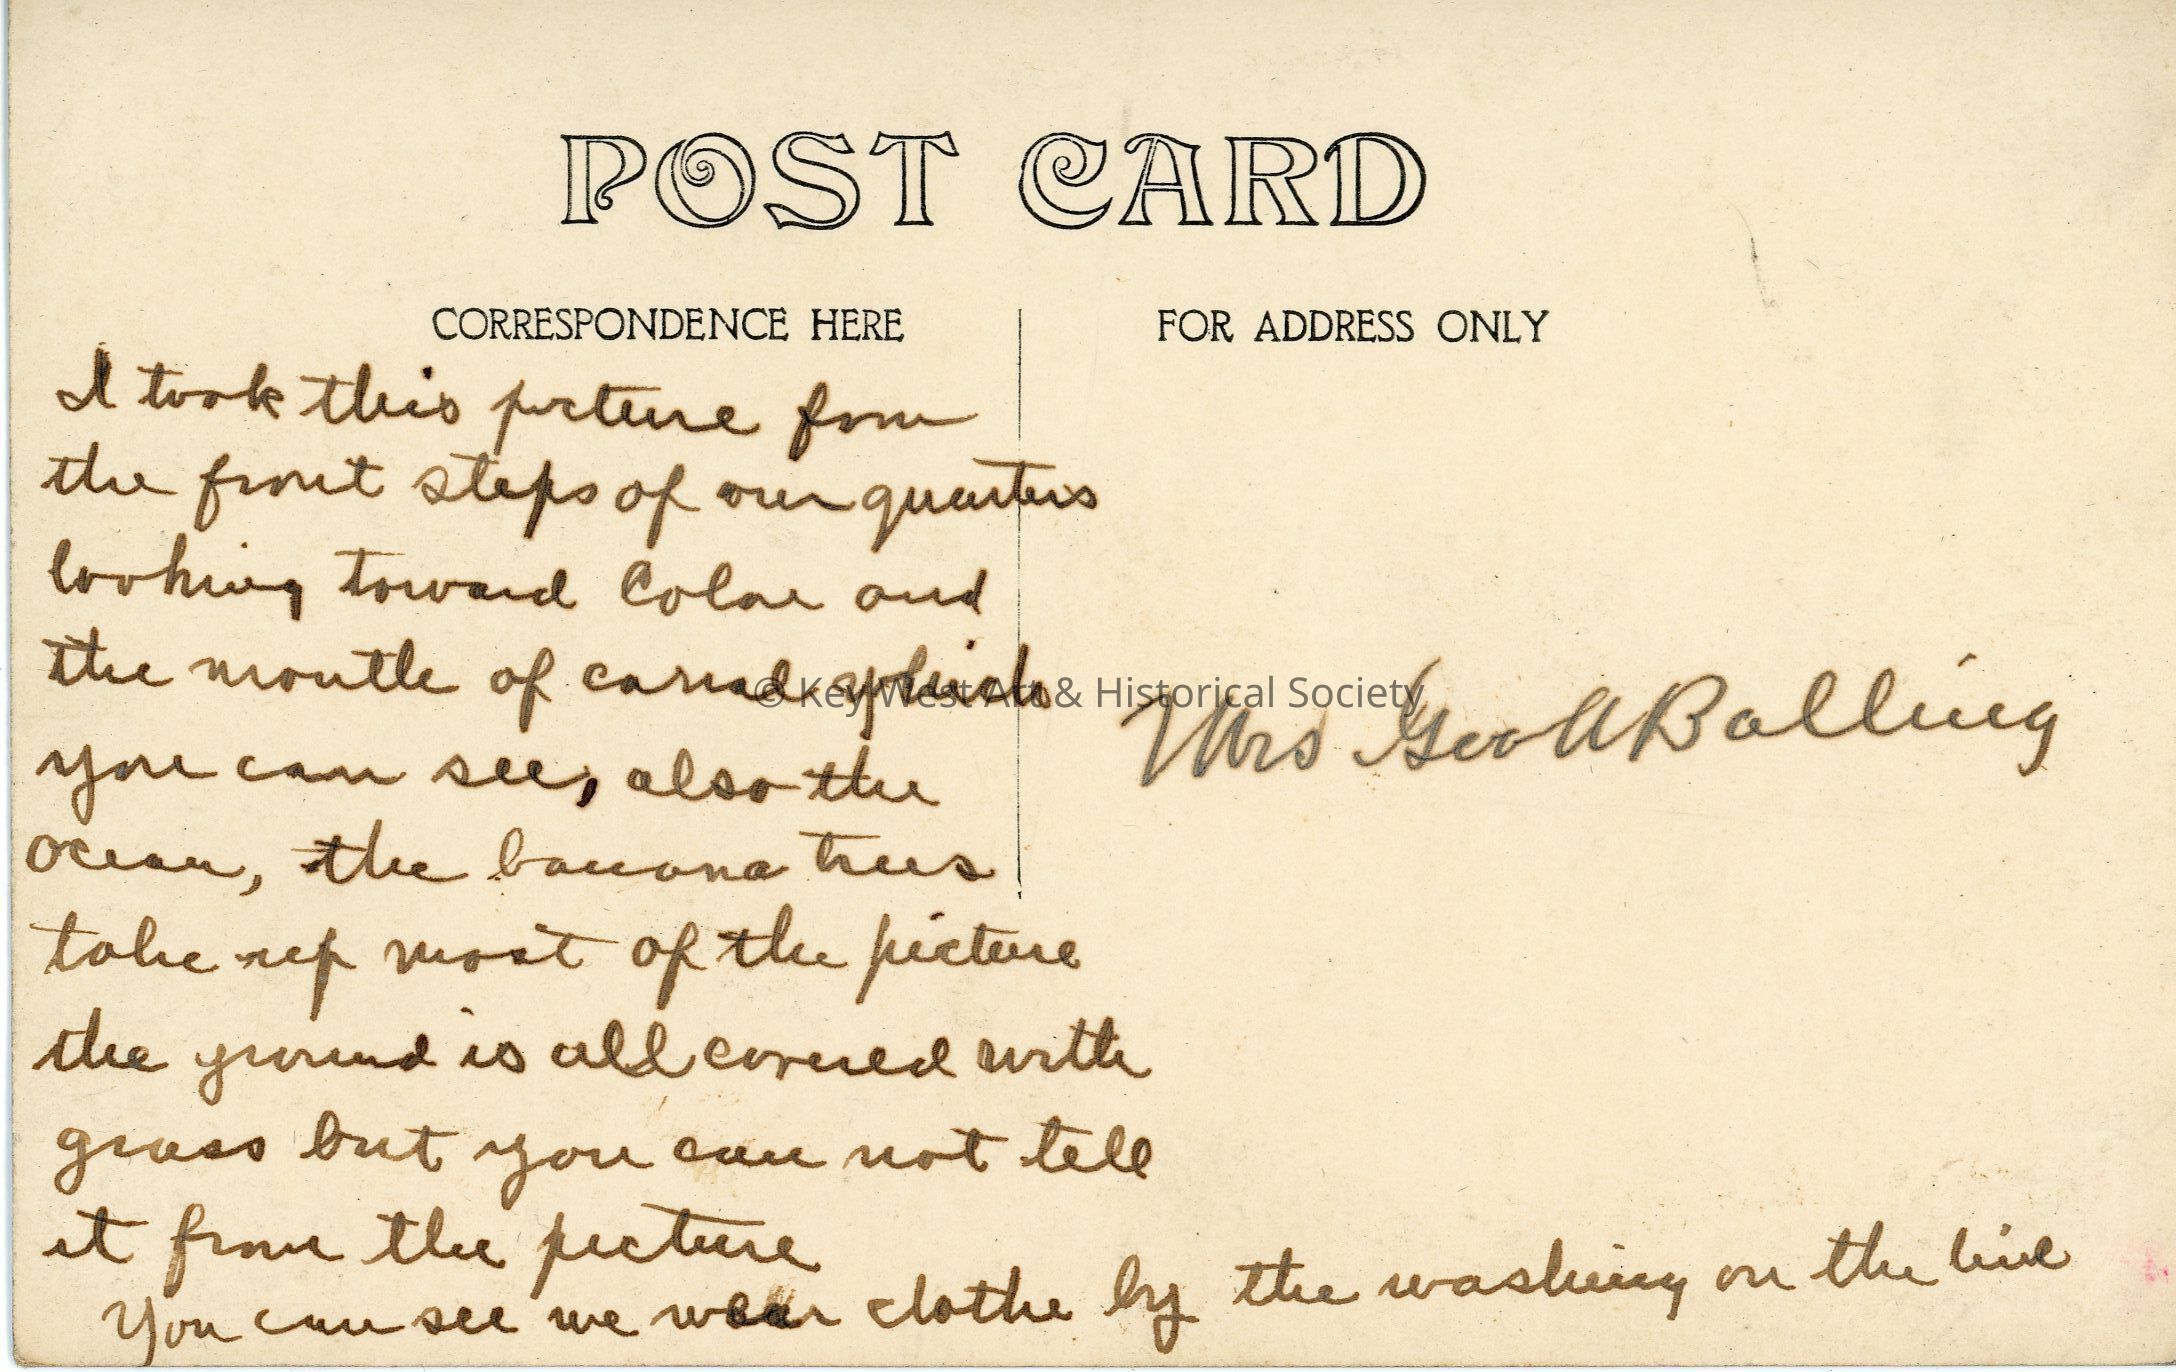 POST CARD
CORRESPONDENCE HERE
FOR ADDRESS ONLY
I took this picture from
the front steps of our quarters
looking toward Colon and
the mouth of canal which
you can see, also the
ocean, the banana trees
take up most of the picture
the ground is all covered with
grass but you can not tell
it from the picture
You can see we wear clothe by the washing on the line
Mrs Geo A Balling
© Key West Art & Historical Society